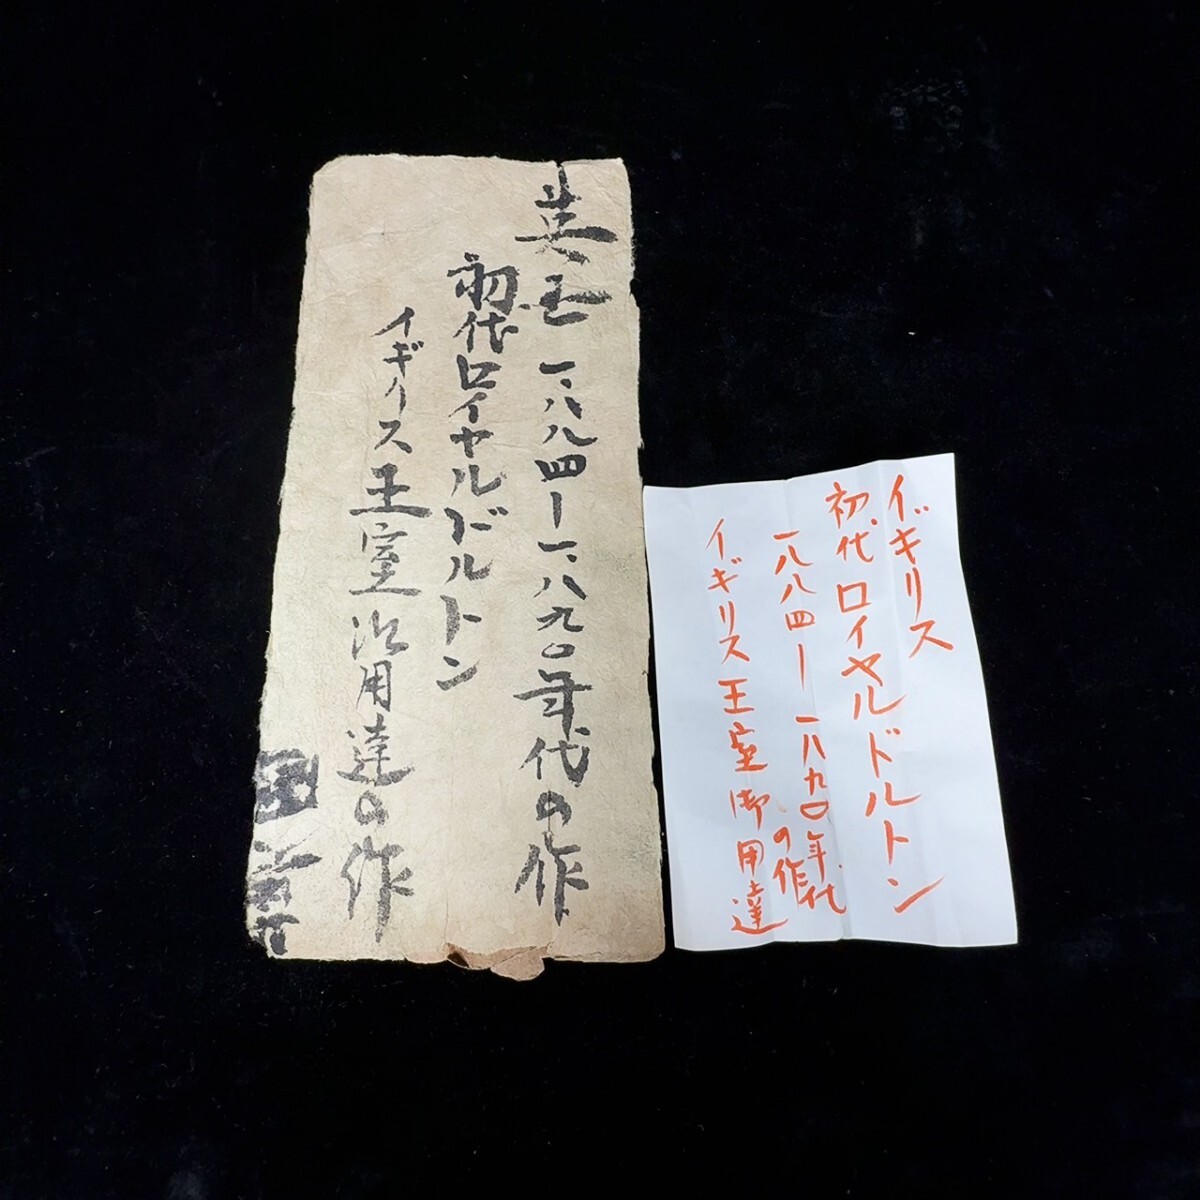 英王 一八八四ー一八九〇年代の作
初代ロイヤルドルトン
イギリス王室御用達の作
イギリス
初代ロイヤルドルトン
一八八四ー一八九〇年代の作
イギリス王室御用達